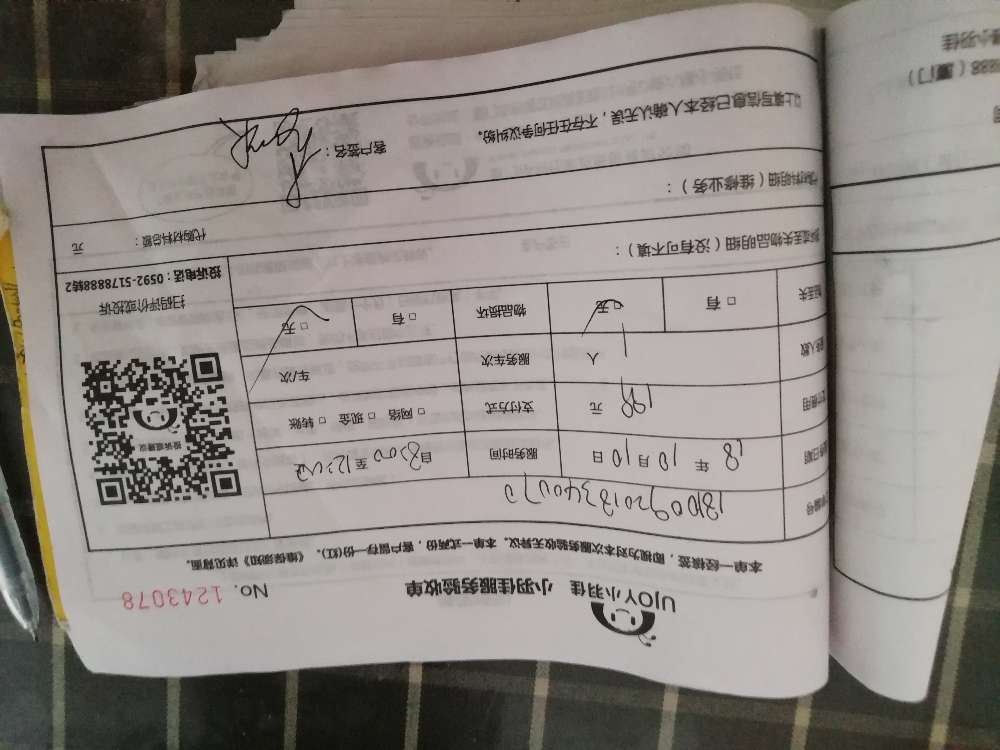 UJOY小羽佳 小羽佳服务验收单 No. 1243078
本单一经核签，即视为对本次服务验收无异议。本单一式两份，客户留存一份(红)。《维保须知》详见背面。
单编号
务日期 18 年 10 月 10 日 服务时间 自 8:00 至 12:00
费用 199 元 支付方式 □ 网络 □ 现金 □ 转账
人数 1 人 服务车次 车/次
丢失 □ 有 □ 无 物品损坏 □ 有 □ 无
投诉或建议
扫码评价或投诉
投诉电话：0592-5178888转2
丢失物品明细（没有可不填）：
材料明细（维修业务）： 代购材料总额： 元
以上填写信息已经本人确认无误，不存在任何争议纠纷。 客户签名：
888（厦门）
小羽佳